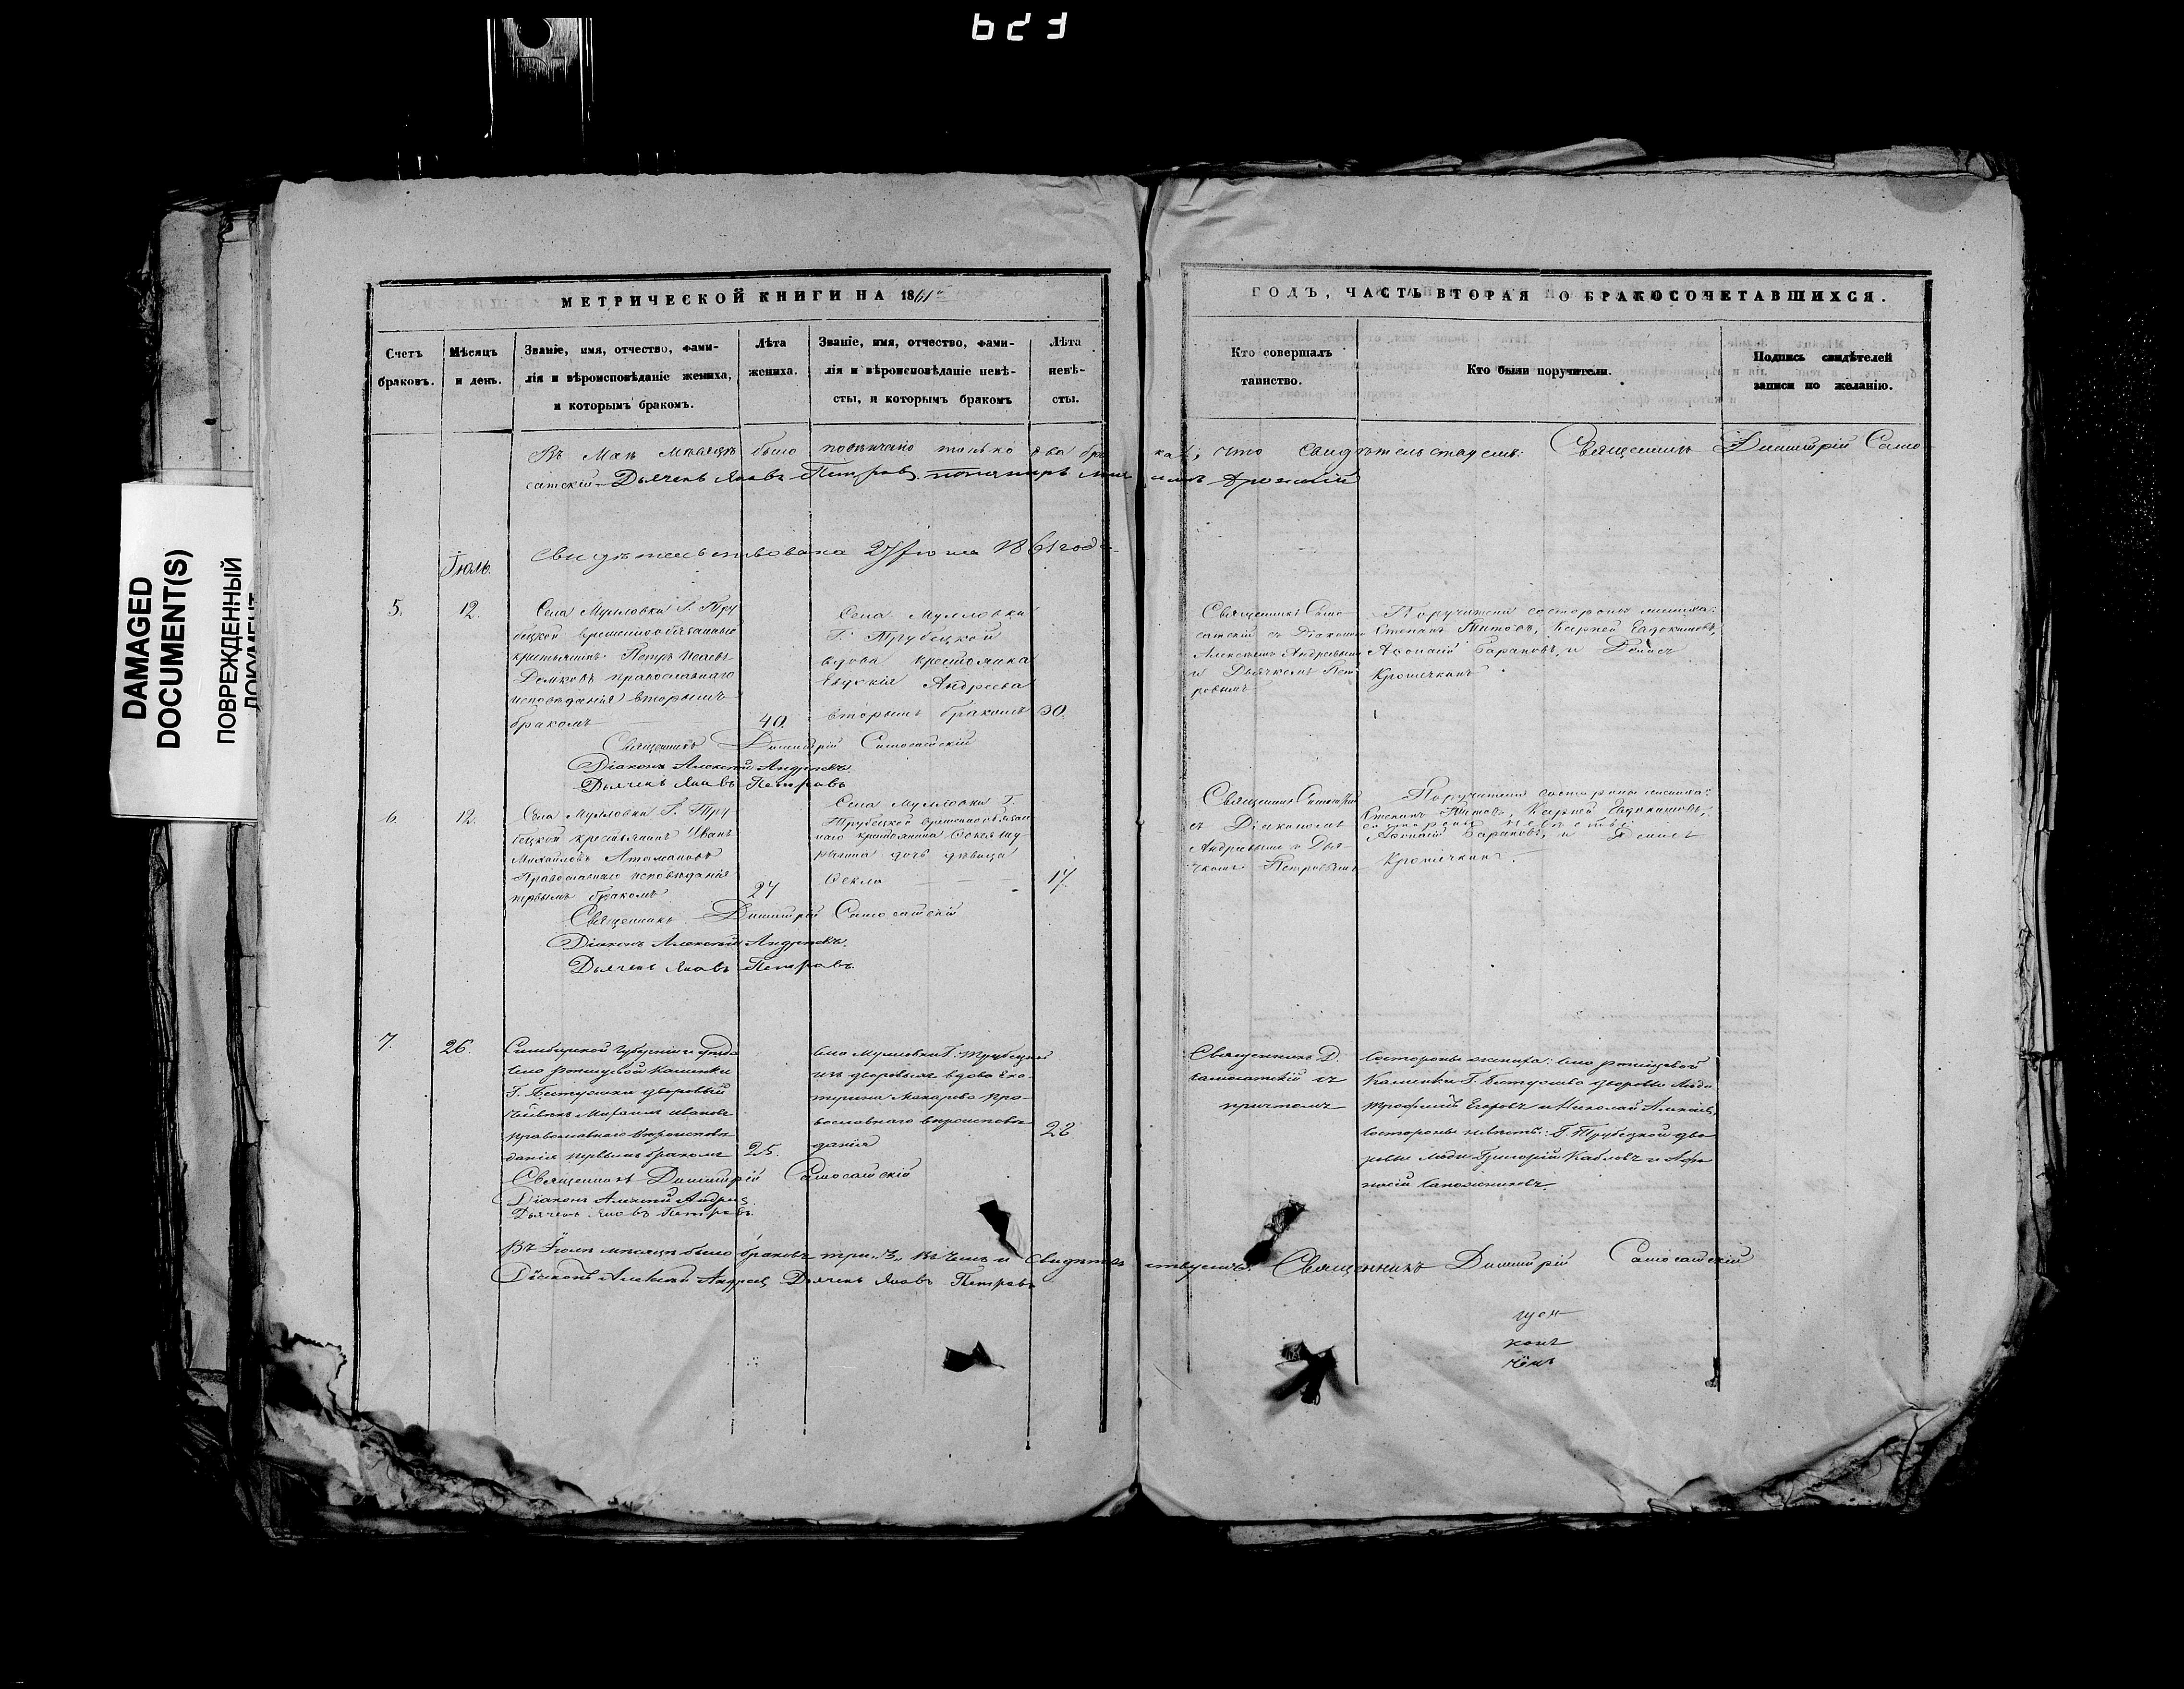 DAMAGED
DOCUMENT(S)
ПОВРЕЖДЕННЫЙ
ДОКУМЕНТ
МЕТРИЧЕСКОЙ КНИГИ НА 1861й
Счетъ
браковъ.
Мѣсяцъ
и день.
Званіе, имя, отчество, фами-
лія и вѣроисповѣданіе жениха,
и которымъ бракомъ.
Лѣта
жениха.
Званіе, имя, отчество, фами-
лія и вѣроисповѣданіе невѣ-
сты, и которымъ бракомъ
Лѣта
невѣ-
сты.
ГОДЪ, ЧАСТЬ ВТОРАЯ О БРАКОСОЧЕТАВШИХСЯ.
Кто совершалъ
таинство.
Кто были поручители.
Подпись свидѣтелей
записи по желанію.
Въ Маѣ мѣсяцѣ было повѣнчано только два брака, что свидѣтельствуемъ: Священникъ Димитрій Само
сатскій Дьячекъ Яковъ Петровъ пономарь
Свидѣтельствована 27 Іюля 1861 года
Іюль.
5.
12.
Села Мулловки Г. Тру
бецкой временнообязанный
крестьянинъ Петръ Исаевъ
Домковъ православнаго
исповѣданія вторымъ
бракомъ
40.
Села Мулловки
Г. Трубецкой
вдова крестьянка
Евдокія Андреева
вторымъ бракомъ
30.
Священникъ Само
сатскій съ Діакономъ
Алексѣемъ Андреевымъ
и Дьячкомъ Пет
ровымъ
Поручители со стороны жениха:
Степанъ Титовъ, Кирпей Евдокимовъ,
Афонасій Барановъ, и Денисъ
Крошечкинъ
Священникъ Димитрій Самосатскій
Діаконъ Алексѣй Андреевъ.
Дьячекъ Яковъ Петровъ
6.
12.
Села Мулловки Г. Тру
бецкой крестьянинъ Иванъ
Михайловъ Атамановъ
Православнаго исповѣданія
первымъ бракомъ
27
Села Мулловки Г.
Трубецкой временнообязан
наго крестьянина
дочь дѣвица
Ѳекла
17.
Священникъ Самосатскій
съ Діакономъ
Андреевымъ и Дья
чкомъ Петровымъ
Поручители со стороны жениха:
Степанъ Титовъ, Кирпей Евдокимовъ,
со стороны невѣсты:
Афонасій Барановъ, и Денисъ
Крошечкинъ.
Священникъ Димитрій Самосатскій
Діаконъ Алексѣй Андреевъ.
Дьячекъ Яковъ Петровъ.
7.
26.
Симбирской Губерніи и уѣзда
село Ртищевой Каменки
Г. Бестужева дворовый
человѣкъ Михаилъ Ивановъ
православнаго вѣроисповѣ
данія первымъ бракомъ
25.
Села Мулловки Г. Трубецкой
изъ дворовыхъ вдова Ека
терина Макарова пра
вославнаго вѣроисповѣ
данія
22
Священникъ Д.
Самосатскій съ
причтомъ
Со стороны жениха: села Ртищевой
Каменки Г. Бестужева дворовые люди
Трофимъ Егоровъ и Николай Алексѣевъ
Со стороны невѣсты: Г. Трубецкой дво
ровые люди Григорій Кабловъ и Афо
насій Сапожниковъ.
Священникъ Димитрій Самосатскій
Діаконъ Алексѣй Андреевъ
Дьячекъ Яковъ Петровъ.
Въ Іюлѣ мѣсяцѣ было браковъ три „3„ въ чемъ и свидѣтельствуемъ: Священникъ Димитрій Самосатскій
Діаконъ Алексѣй Андреевъ Дьячекъ Яковъ Петровъ